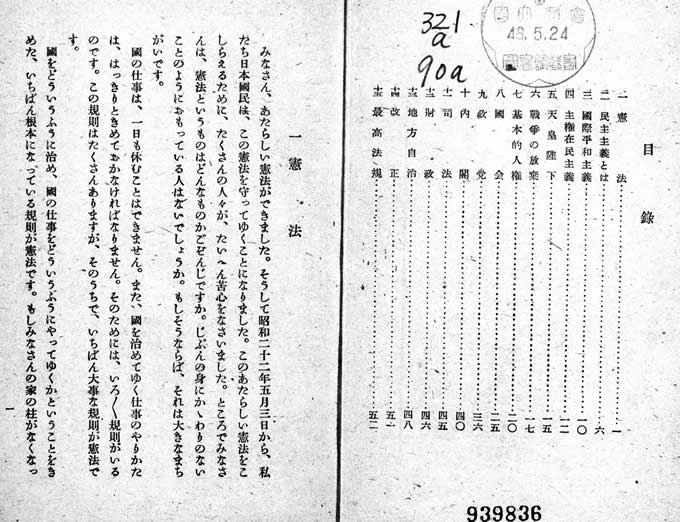 321
a
90a
48.5.24
目錄
一 憲法……一
二 民主主義とは……六
三 國際平和主義……一〇
四 主権在民主義……一二
五 天皇陛下……一五
六 戰爭の放棄……一七
七 基本的人権……二〇
八 國会……
九 政党……三六
十 内閣……四〇
十一 司法……四五
十二 財政……四六
十三 地方自治……四八
十四 改正……五一
十五 最高法規……五二
939836
一 憲法
みなさん、あたらしい憲法ができました。そうして昭和二十二年五月三日から、私
たち日本國民は、この憲法を守ってゆくことになりました。このあたらしい憲法をこ
しらえるために、たくさんの人々が、たいへん苦心をなさいました。ところでみなさ
んは、憲法というものはどんなものかごぞんじですか。じぶんの身にかゝわりのない
ことのようにおもっている人はないでしょうか。もしそうならば、それは大きなまち
がいです。
國の仕事は、一日も休むことはできません。また、國を治めてゆく仕事のやりかた
は、はっきりときめておかなければなりません。そのためには、いろ〳〵規則がいる
のです。この規則はたくさんありますが、そのうちで、いちばん大事な規則が憲法で
す。
國をどういうふうに治め、國の仕事をどういうふうにやってゆくかということをき
めた、いちばん根本になっている規則が憲法です。もしみなさんの家の柱がなくなっ
一